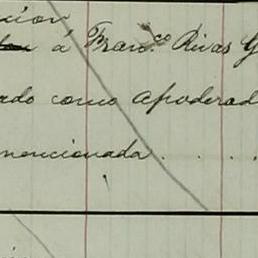 cion
á Fran.co Rivas G
ado como apoderad
mencionada . . . .